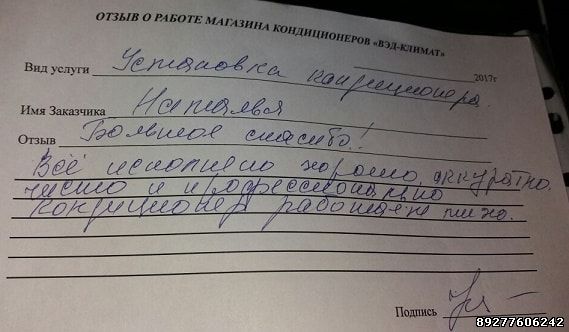 ОТЗЫВ О РАБОТЕ МАГАЗИНА КОНДИЦИОНЕРОВ «ВЭД-КЛИМАТ»
Вид услуги Установка кондиционера. 2017г
Имя Заказчика Наталья
Отзыв Большое спасибо!
Всё исполнено хорошо, аккуратно,
чисто и профессионально
Кондиционер работает тихо.
Подпись
89277606242